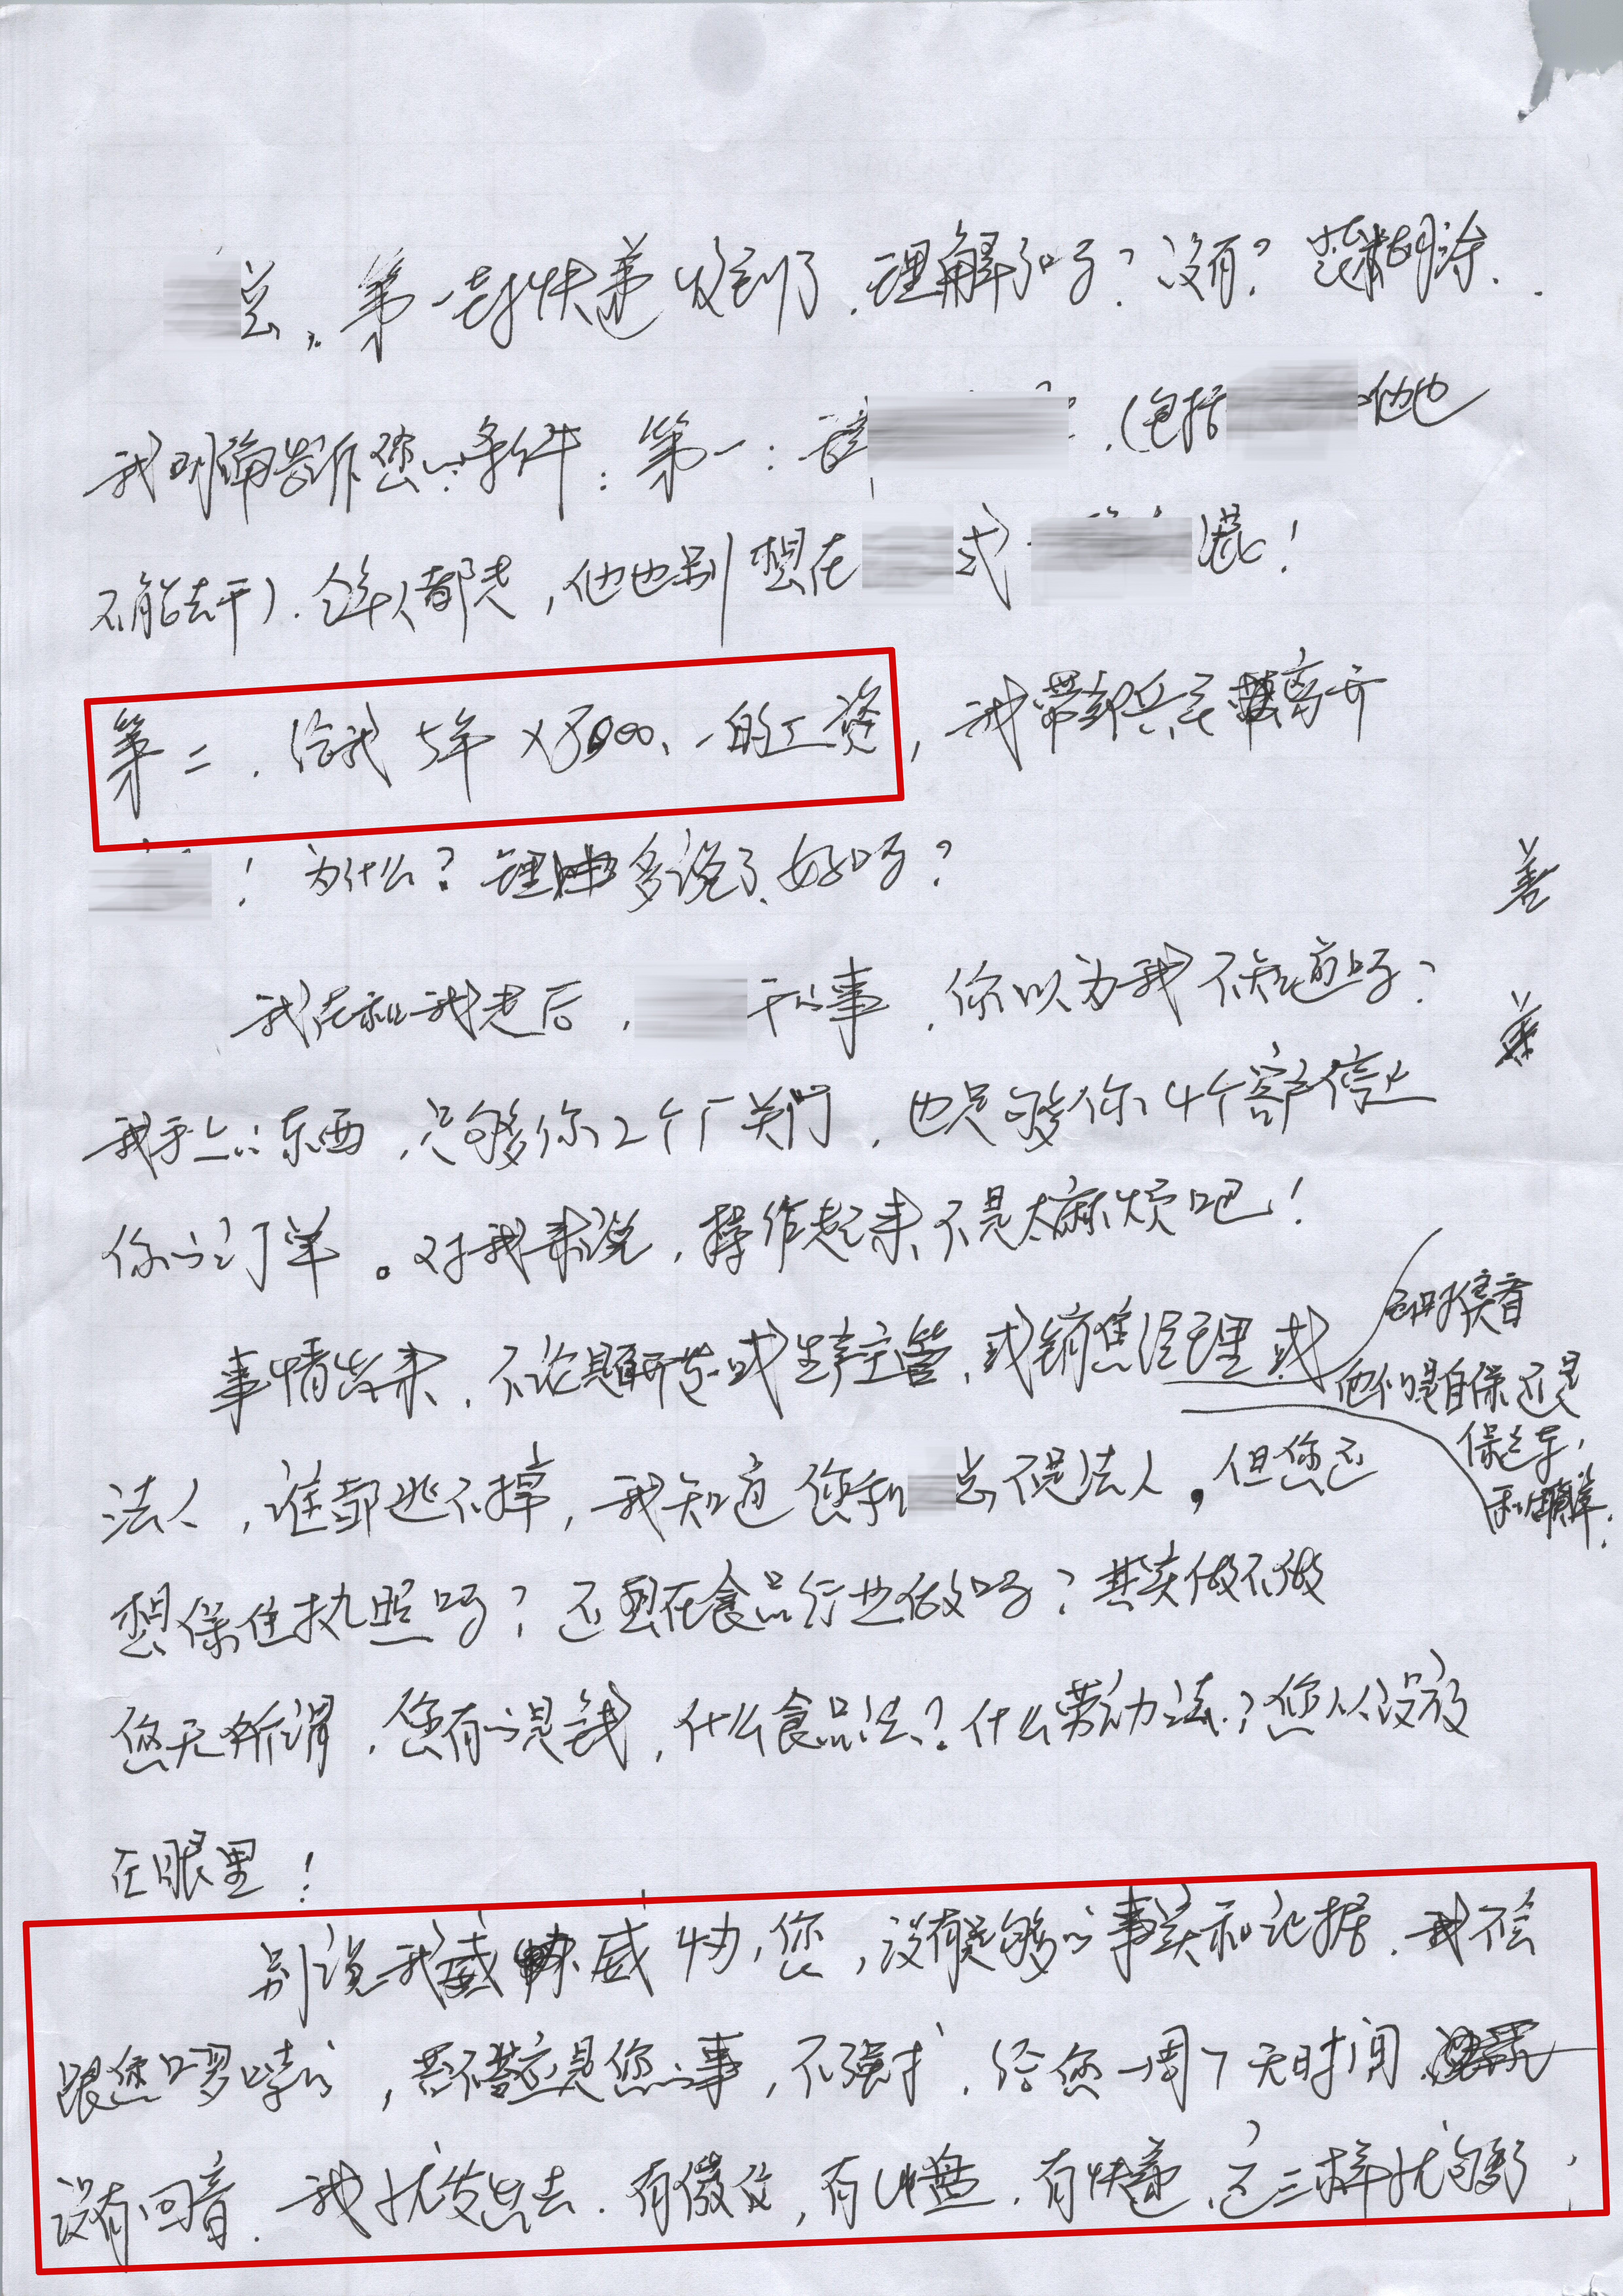 总，第一封快递收到了，理解了吗？没有？装糊涂．
我明确告诉您的条件：第一：请 ，（包括 他也
不能去干）．全部人都走，他也别想在 或 混！
第二．给我5年×8000、一的工资，我带郭兵云离开
！为什么？理由多说了，好吗？
我在和我走后， 干的事，你以为我不知道吗？
我手上的东西，足够你2个厂关门，也足够你4个客户停止
你的订单。对我来说，操作起来不是太麻烦吧！
事情出来，不论是研发或生产主管，或销售经理或
法人，谁都逃不掉，我知道您和 总不是法人，但您还
到时候看
他们是自保还是
保老东，
和解．
想保住执照吗？还想在食品行业做吗？其实做不做
您无所谓，您有的是钱，什么食品法？什么劳动法？您从没放
在眼里！
别说我威 威协您，没有足够的事实和证据，我不会
跟您啰嗦的，答不答应是您的事，不强求，给您一周7天时间
没有回音．我就发出去．有微信，有U盘．有快递，这三样就够了，
善